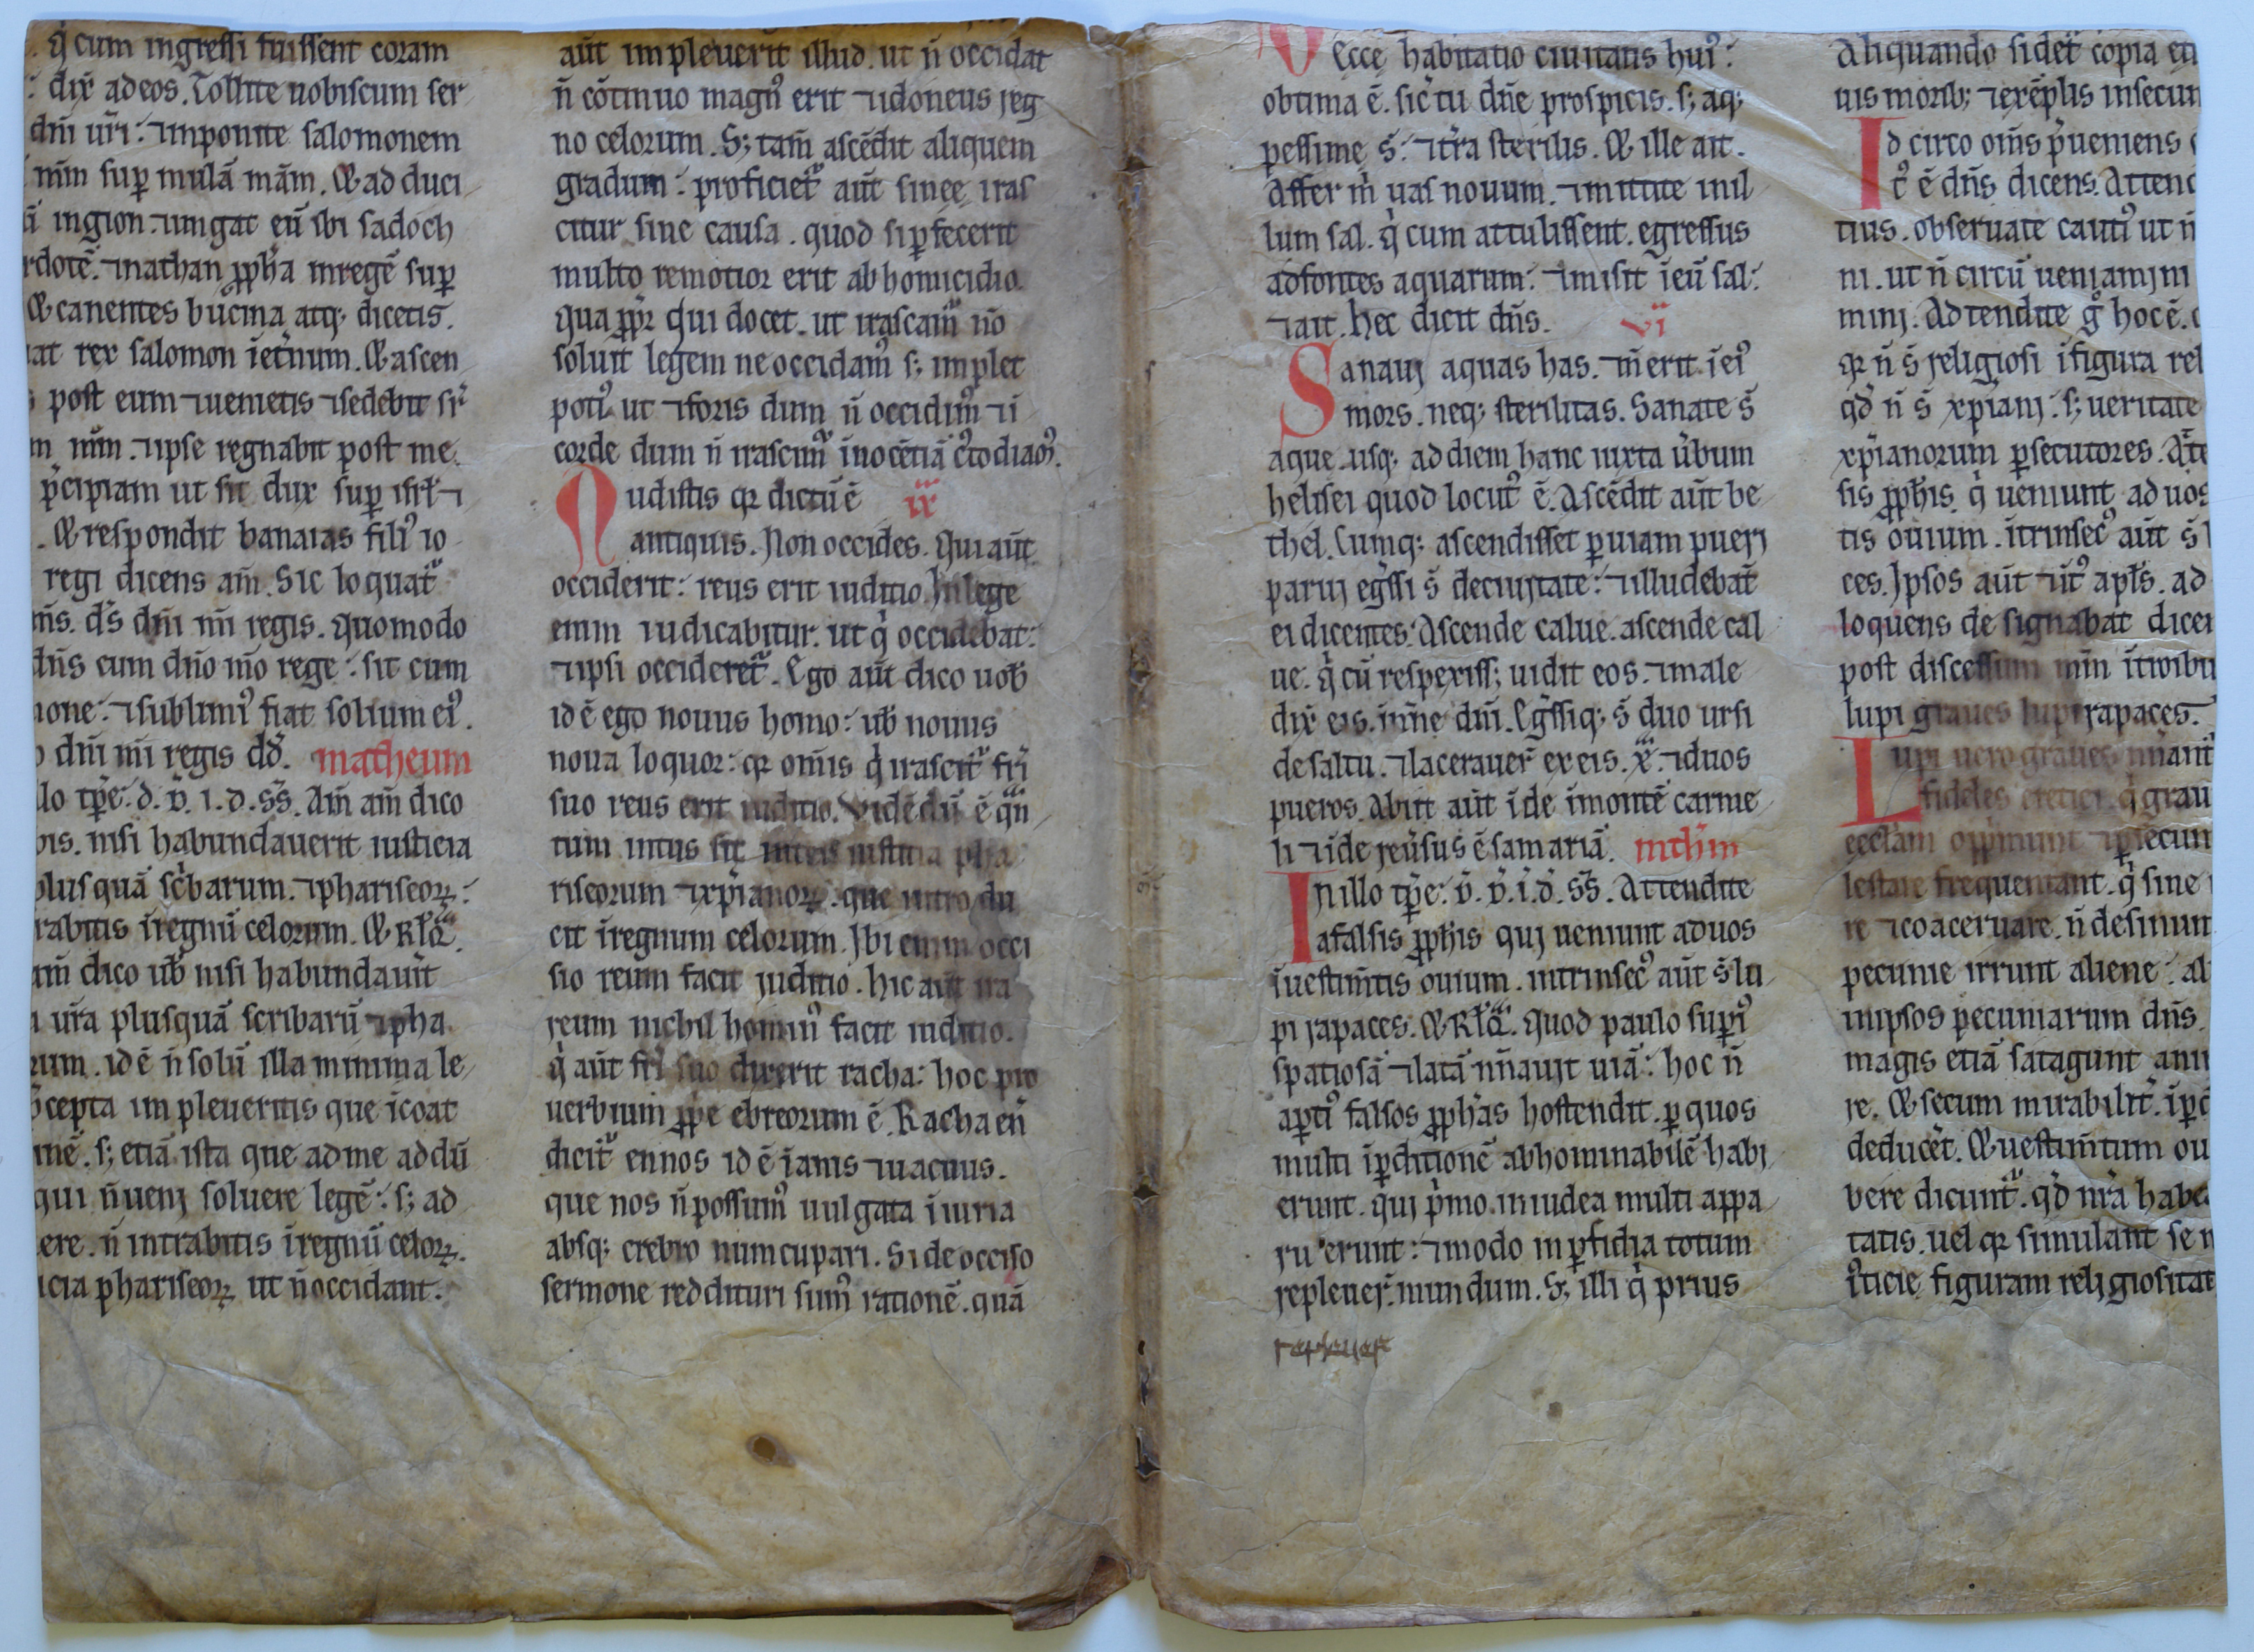 q̇ cum ingressi fuissent coram
dix̄ ad eos. Tollite uobiscum ser
dn̄i ur̄i: ⁊ imponite salomonem
m̄m sup̱ mulā mām. & ad duci
ingion. ⁊ ungat eū ibi sadoch
rdotē. ⁊ nathan ꝓph̄a inregē sup̱
& canentes bucina atq; dicetis.
at rex salomon īet̄num. & ascen
post eum ⁊ uenietis ⁊ sedebit sr̄
m m̄m. ⁊ ipse regnabit post me.
p̄cipiam ut sit dux sup̱ isr̄l ⁊
. & respondit banaias fili᷒ io
regi dicens am̄. Sic loquat᷑
n̄s. ds̄ dn̄i m̄i regis. Quomodo
dn̄s cum dn̄o m̄o rege: sit cum
one: ⁊ sublimi᷒ fiat solium ei᷒.
dn̄i m̄i regis dd̄. matheum
llo tp̄e: d. d̄. i. d. ss̄. Am̄ am̄ dico
bis. nisi habundauerit iusticia
plusquā sc̄barum. ⁊ phariseoꝝ:
rabitis īregnū celorum. &
am̄ dico ub̄ nisi habundau̇it
ur̄a plusquā scribarū ⁊ pha
rum. id ē n̄ solū illa minima le
p̄cepta impleueritis que īcoat
nē. s; etiā ista que ad me addū
qui n̄ uenj soluere legē: s; ad
ere. n̄ intrabitis īregnū celoꝝ.
icia phariseoꝝ ut n̄ occidant.
aūt impleuerit illud. ut n̄ occidat
n̄ cōtinuo magn᷒ erit ⁊ idoneus reg
no celorum. S; tam̄ ascēdit aliquem
gradum: proficiet᷑ aūt sinec iras
citur sine causa. quod si ꝑfecerit
multo remotior erit ab homicidio.
Qua ꝓpt̄ qui docet. ut irascam᷑ nō
soluit legem ne occidam᷒ s; implet
poti᷒ ut ⁊ foris dum n̄ occidim᷒ ⁊ ī
corde dum n̄ irascim᷑ īnocētiā c᷒todiam᷒.
Audistis qꝛ dictū ē ix
antiquis. Non occides. Qui aūt
occiderit: reus erit iuditio. In lege
enim iudicabitur. ut q̇ occidebat:
⁊ ipsi occideret᷑. Ego aūt dico uob̄
id ē ego nouus homo: ub̄ nouus
noua loquor: qꝛ omīs q̇ irascit᷑ fr̄i
suo reus erit iuditio. Vidēdū ē qn̄
tum intus sit inter iustitia pha
riseorum ⁊ xp̄ianoꝝ. que intro du
cit īregnum celorum. Ibi enim occi
sio reum facit juditio. hic aūt ira
reum nichil homin᷒ facit iuditio.
q̇ aūt fr̄i suo dixerit racha: hoc pro
uerbium ꝓp̄e ebreorum ē. Racha en̄
dicit᷑ ennos id ē īanis ⁊ uacuus.
que nos n̄ possum᷒ uulgata īiuria
absq; crebro nuncupari. Si de occiso
sermone reddituri sum᷒ rationē. quā
Ecce habitatio ciuitatis hui᷒:
obtima ē. sic̄ tu dn̄e prospicis. s; aq;
pessime s̄: ⁊ tr̄a sterilis. & ille ait.
Affer m̄ uas nouum. ⁊ mittite inil
lum sal. q̇ cum attulissent. egressus
ad fontes aquarum: ⁊ misit īeū sal:
⁊ ait. hec dicit dn̄s. vi
Sanauj aquas has. ⁊ n̄ erit īei᷒
mors. neq; sterilitas. Sanate s̄
aque usq; ad diem hanc iuxta u̇bum
helisei quod locut᷒ ē. Ascēdit aūt be
thel. Cumq; ascendisset ꝑ uiam puerj
paruj eḡssi s̄ deciujtate: ⁊ illudebāt
ei dicentes: Ascende calue. ascende cal
ue. q̇ cū respexiss; uidit eos. ⁊ male
dix̄ eis. īnīne dn̄i. Eḡssiq; s̄ duo ursi
de saltu. ⁊ lacerauer̄ ex eis. x̄l. ⁊ duos
pueros. Abiit aūt īde īmontē carme
li ⁊ īde reu̇sus ē samariā. mth̄m
In illo tp̄e: d̄. d̄. i. d̄. ss̄. Attendite
a falsis ꝓph̄is quj ueniunt aduos
īuestim̄tis ouium. intrinsec᷒ aūt s̄ lu
pi rapaces. & Quod paulo superi᷒
spatiosā ⁊ latā nn̄auit uiā: hoc n̄
apti᷒ falsos ꝓph̄as hostendit. ꝑ quos
multi īꝑditionē abhominabilē habj
erunt. quj p̄mo. in iudea multi appa
ru erunt: ⁊ modo in ꝑfidia totum
repleuer̄. mundum. S; illi q̇ prius
repleuer̄
Aliquando sidet̄ copia eti
uis morib; ⁊ exēplis insecun
Id circo om̄s p̄ueniens
t᷒ ē dn̄s dicens. Attend
tius. obseruate cauti᷒ ut n̄
ni. ut n̄ circū ueniamjni
minj. Ad tendite g̊ hoc ē.
qꝛ n̄ s̄ religiosi īfigura rel
qd̄ n̄ s̄ xp̄ianj: s; ueritate
xp̄ianorum ꝑsecutores. At̄te
sis ꝓph̄is. q̇ ueniunt ad uos
tis ouium. ītrinsec᷒ aūt s̄ l
ces. Ipsos aūt ⁊ ut᷒ apl̄s. ad
loquens de signabat dicen
post discessum m̄m ītroibu
lupi graues lupi rapaces.
Lupi uero graues nn̄ant᷑
fideles eretici. q̇ grau
ecclam opp̄munt ⁊ ꝑsecun
lestare frequentant. q̇ sine
re ⁊ coaceruare. n̄ desinunt
pecunie irrunt aliene: al
inipsos pecuniarum dn̄s.
magis etiā satagunt ani
re. & secum mirabilit̄. īꝑd
deducet. & uestim̄tum ou
vere dicunt᷑. qd̄ nr̄a habe
tatis. uel qꝛ simulant se n
ī᷒ticie figuram religiositat